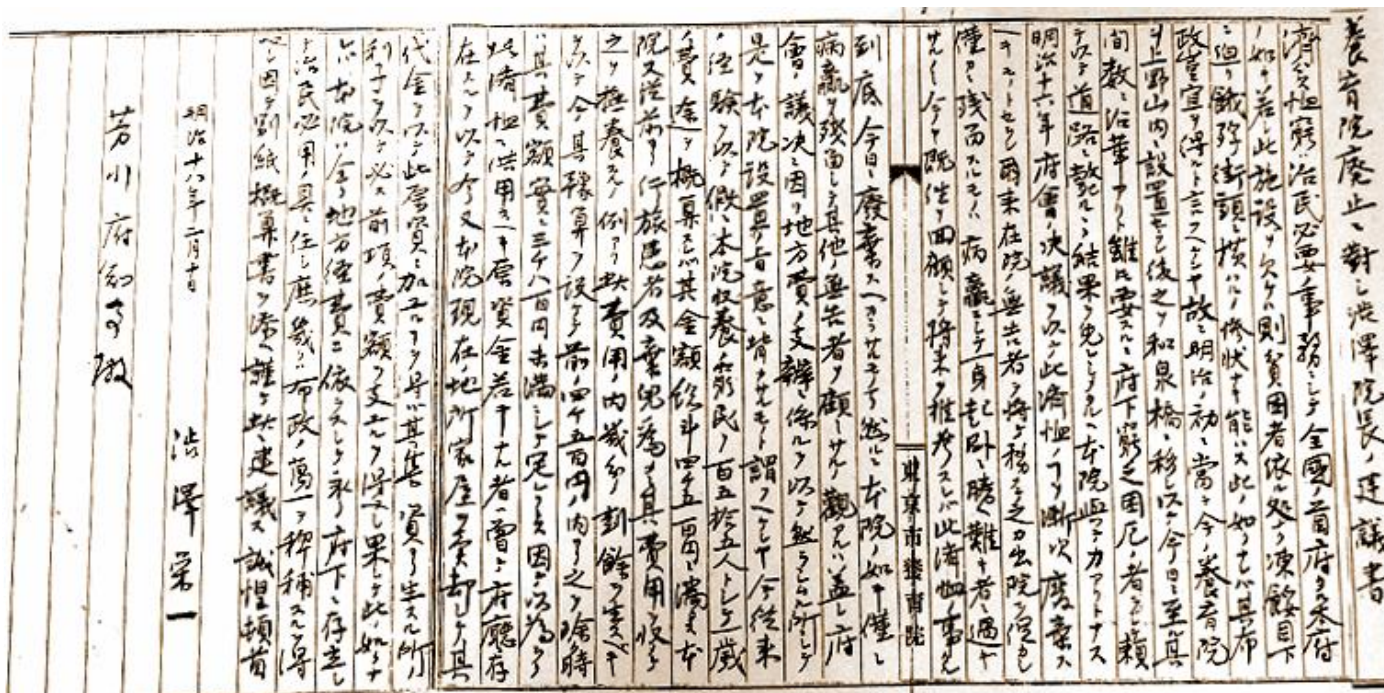 養育院廃止ニ對シ澁澤院長ノ建議書
恤窮ハ治民必要ノ事務ニシテ全國ノ首府タル本府
ノ如キ若シ此施設ヲ欠クハ則貧困者依処ナク凍餒目下
ニ迫リ餓莩街頭ニ横ハルノ惨状ナキ能ハス此ノ如キハ其布
政宜ヲ得ルト言フヘケンヤ故ニ明治ノ初ニ當テ今ノ養育院
ヲ上野山内ニ設置セラレ後之ヲ和泉橋ニ移シ以テ今日ニ至ル其
間数々沿革アリト雖モ要スルニ府下窮乏困厄ノ者ヲシテ頼
テ以テ道路ニ斃ルヽノ結果ヲ免レシメタルハ本院與テ力アリトナス
明治十六年府會ノ決議ヲ以テ此濟恤ノ事ヲ漸次廃棄ス
ヘキモノトセシ爾来在院ノ無告者ヲ 之カ出院ヲ促シ
僅カニ残留スルモノハ病羸ニシテ一身起臥ニ難キ者ニ過キ
サルノミ今ヤ既往ヲ回顧シテ将来ヲ推考スレハ此濟恤ノ事タル
東京市養育院
到底今日ニ廃棄スヘカラサルモノナリ然ルニ本院ノ如キ僅ニ
病羸ヲ残留シテ其他ノ無告者ヲ顧ミサルノ觀アルハ蓋シ府
會ノ議決ニ因リ地方費ノ支辨ニ係ルヲ以テ然ラシムル所ニシテ
是レ本院設置ノ旨意ニ背クモノト謂フヘシ今従来
ノ経験ヲ以テ假ニ本院収養ノ窮民ヲ百五拾五人トシテ一歳
ノ費途ヲ概算スレハ其金額 四千五百円ニ満タス本
院又従前ヨリ行旅患者及棄児ノ為メニ其費用ヲ収テ
之ヲ撫養スルノ例アリ此費用ノ内幾分ノ剰餘ヲ生スヘキ
ヲ以テ今其豫算ヲ設ケ前ノ四千五百円ノ内ヨリ之ヲ除
ハ其費額實ニ三千八百円ニ満シテ足レリトス因テ以為ラク
此濟恤ニ供用スヘキ資金若干ナル者ハ曽テ府廳ニ存
在スルヲ以テ今又本院現在ノ地所家屋ヲ賣却シテ其
代金ヲ以テ此 ニ加エルヲ得ハ其 資ヨリ生スル所ノ
利子ヲ以テ必ス前項ノ費額ヲ支エルヲ得ヘシ果シテ此ノ如クナ
ルハ本院ハ全ク地方経費ニ依ラスシテ永ク府下ニ存立シ
テ治民必用ノ具ニ任シ庶幾ハ市政ノ萬一ヲ裨補スルヲ得
ヘシ因テ別紙概算書ヲ添ヘ謹テ此ニ建議ス誠惶頓首
明治十八年二月十日
澁澤栄一
芳川府知事殿